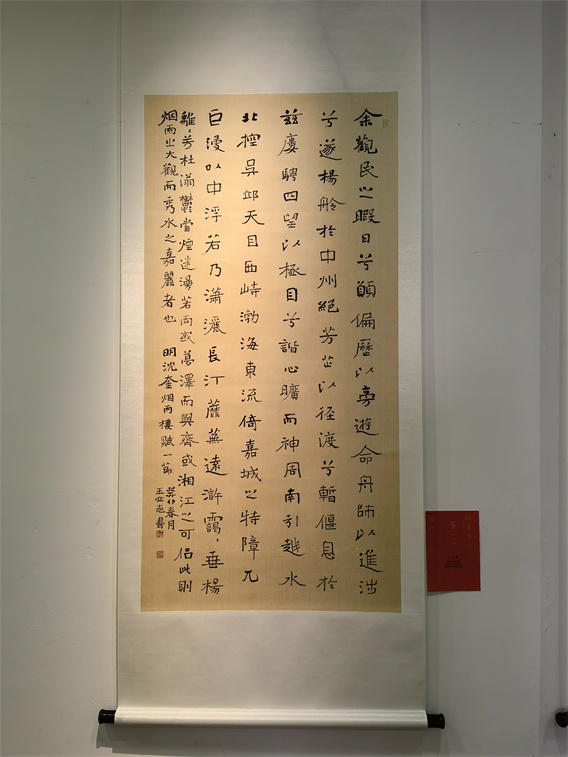 余觀民之暇日兮顧偏歷以旁遊命舟師以進涉
兮遂楊舲於中州絕芳芷以徑渡兮暫偃息於
茲廔騁四望以極目兮諧心曠而神周南引越水
北控吳邱天目西峙渤海東流倚嘉城之特障兀
巨浸以中浮若乃瀟灑長汀蘼蕪遠滸靄靄垂楊
離離芳杜滃鬱當煙迷漫若雨或夢澤而興齊或湘江之可侶此則
烟雨之大觀而秀水之嘉麗者也 明沈奎烟雨樓賦一節
癸卯春月